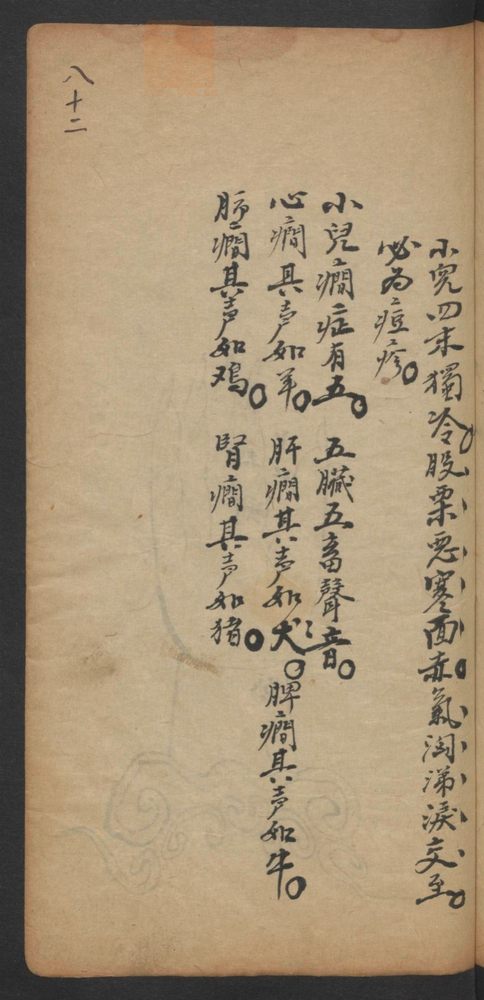 小児四末獨冷股栗惡寒面赤。氣洶涕淚交至。
必为痘疹。
小兒癎症有五。五臟五畜聲音。
心癎具声如羊。肝癎其声如犬。脾癎其声如牛。
肺癎其声如鸡。腎癎其声如猪。
八十二